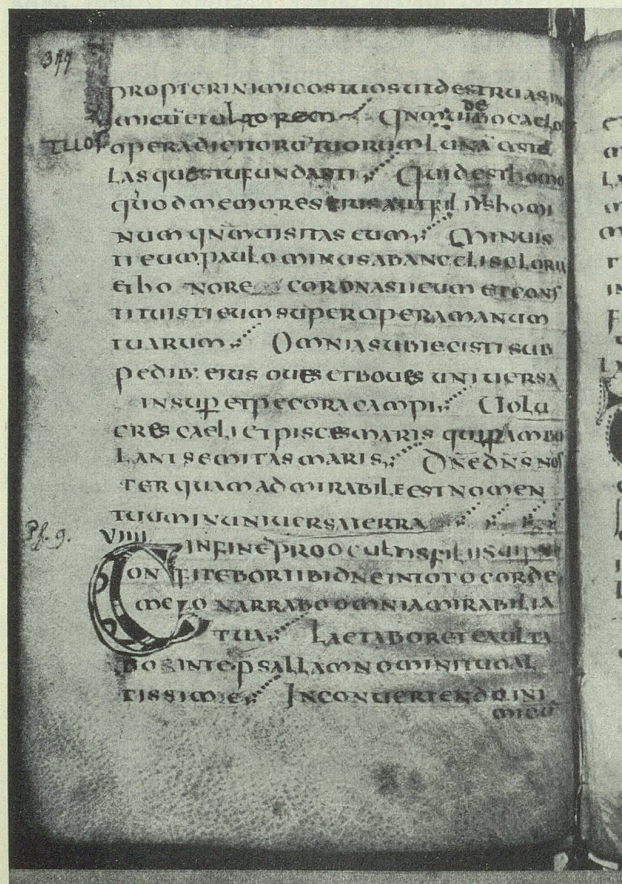 propterinimicostuosutdestruasin
imicu etultorem Qnm uidebo caelos
tuos
operadigitorū tuorum Luna etstel
lasquaetufundasti Quidesthomo
quodmemores eius autfiliushomi
num qnmuisitas eum Minuis
tieum paulominusabangelis glori
etho nore coronastieum etcons
tituistieum superoperamanum
tuarum Omniasubiecistisub
pedib: eius oues etboues uniuersa
insup̄ etpecoracampi Uolu
cres caeli etpiscesmaris quip̄ambo
lant semitasmaris Dn̄edn̄snos
ter quam admirabileestnomen
tuuminuniuersaterra
Ps. 9.
VIIII
infinēprooccultisfili
Confitebortibidn̄eintotocorde
meo narraboomniamirabilia
tua Laetaboretexulta
bo inte psallamnominituoal
tissime Inconuertendoini
micū